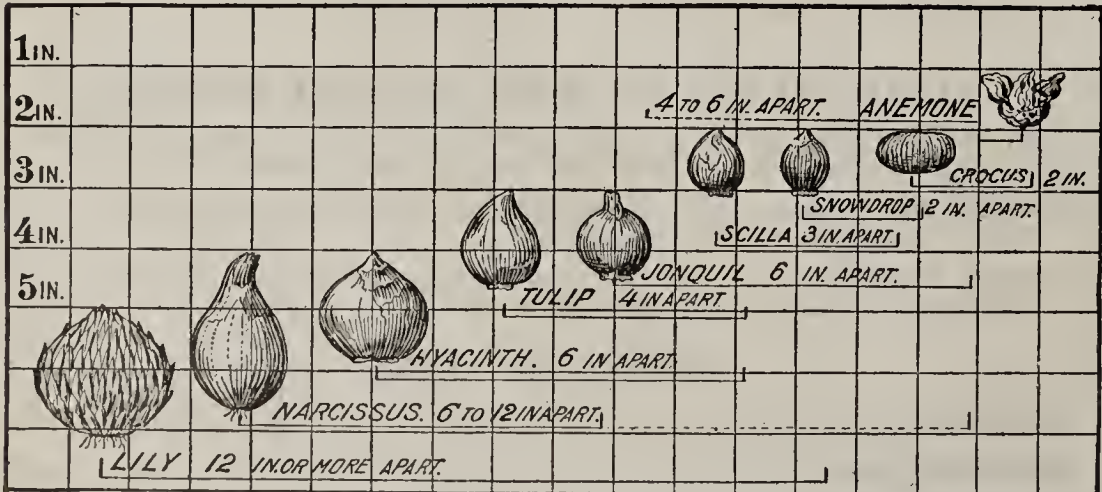 1 IN.
2 IN.
4 TO 6 IN. APART. ANEMONE
3 IN.
CROCUS 2 IN.
SNOWDROP 2 IN. APART.
4 IN.
SCILLA 3 IN. APART.
5 IN.
JONQUIL 6 IN. APART.
TULIP 4 IN APART.
HYACINTH. 6 IN APART.
NARCISSUS. 6 TO 12 IN APART.
LILY 12 IN. OR MORE APART.